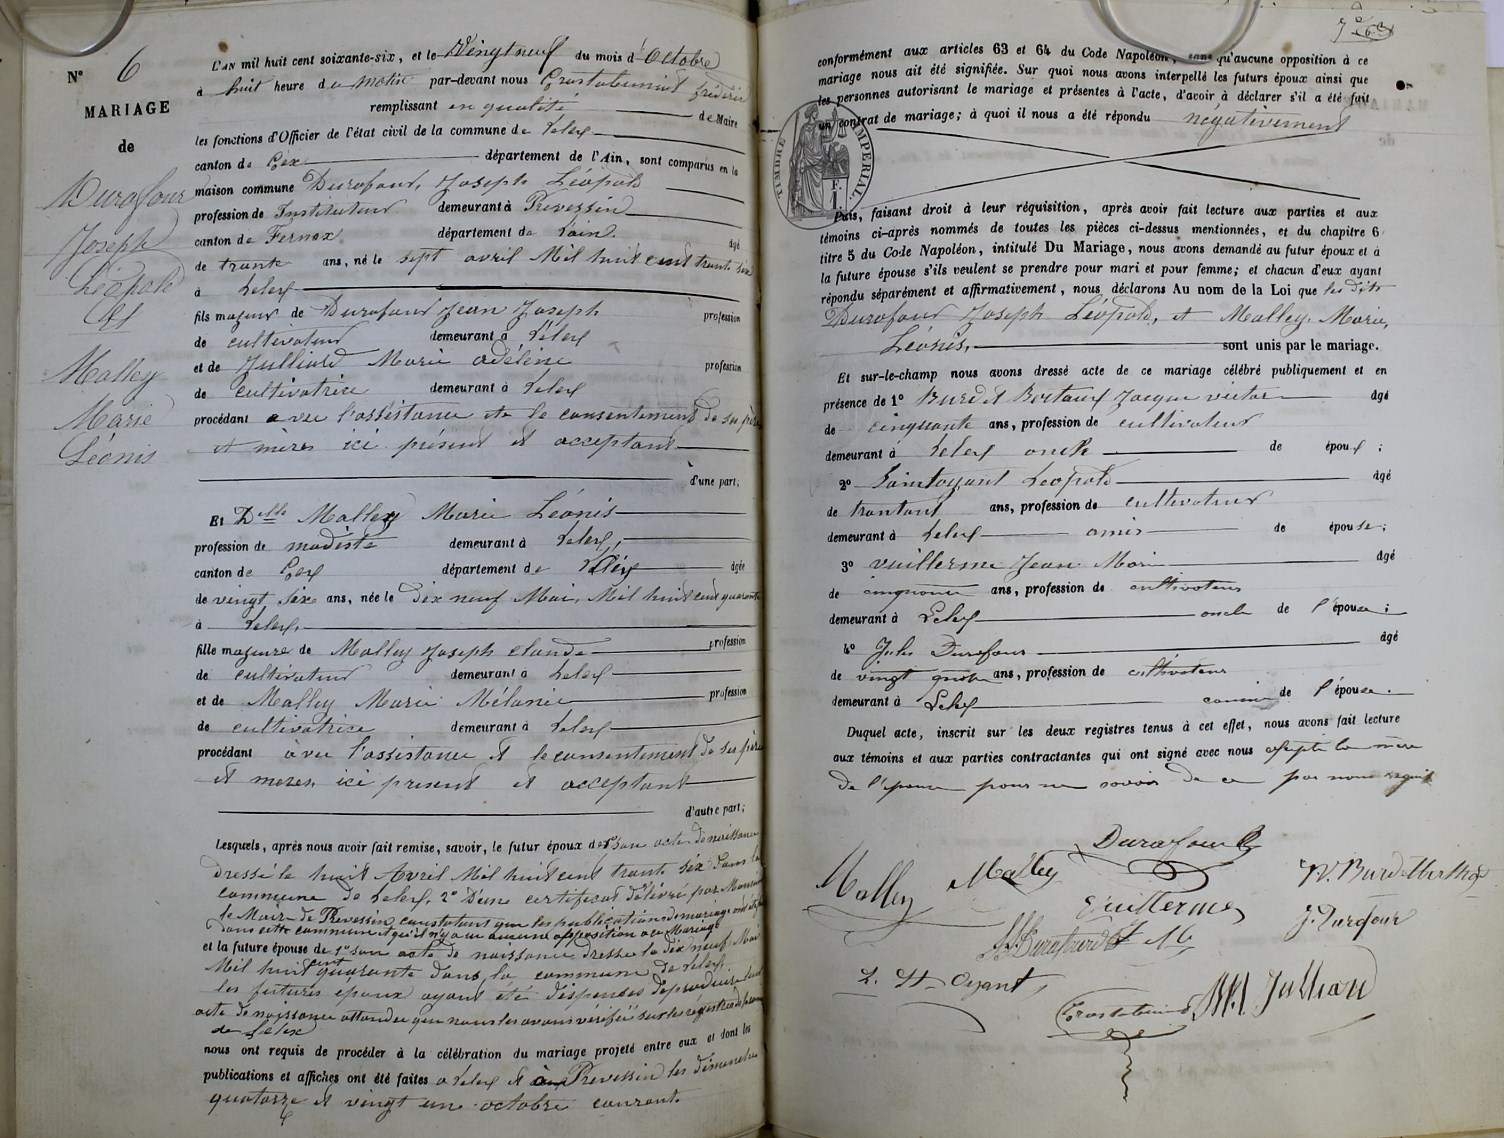 N° 6
MARIAGE
de
Durafour
Joseph
Léopold
Et
Malley
Marie
Léonis
L'AN mil huit cent soixante-six, et le Vingt neuf du mois d'Octobre
à huit heure du matin par-devant nous Grostabussiat frédéric
remplissant en qualité de Maire
les fonctions d'Officier de l'état civil de la commune de Lelex
canton de Gex département de l'Ain, sont comparus en la
maison commune Durafour, Joseph Léopold
profession de Instituteur demeurant à Prevessin
canton de Fernex département de Lain âgé
de trente ans, né le sept avril Mil huit cent trente six
à Lelex
fils majeur de Durafour Jean Joseph profession
de cultivateur demeurant à Lélex
et de Julliard Marie adéline profession
de cultivatrice demeurant à Lelex
procédant avec l'assistance et le consentement de ses père
et mères ici présent et acceptant
d'une part;
Et Delle Malley Marie Léonis
profession de modiste demeurant à Lelex,
canton de Gex département de âgée
de vingt six ans, née le Dix neuf Mai, Mil huit cent quarante
à Lelex,
fille majeure de Malley Joseph Claude profession
de cultivateur demeurant à Lelex
et de Malley Marie Mélanie profession
de cultivatrice demeurant à Lelex
procédant avec l'assistance et le consentement de ses père
et meres, ici present et acceptant
d'autre part;
Lesquels, après nous avoir fait remise, savoir, le futur époux de 1° son acte de naissance
dressé le huit Avril Mil huit cent trente six dans la
commune de Lelex, 2° D'une certificat délivré par Monsieur
le Maire de Prevessin constatant que les publications de mariage ont été faites
dans cette commune et qu'il n'y a eu aucune opposition a ce Mariage
et la future épouse de 1° son acte de naissance dressé le dix neuf Mai
Mil huit cent quarante dans la commune de Lelex.
les futures epoux ayant été dispensés de produire leur
acte de naissance attendu que nous les avons verifiés sur les registres de la commune
de Lelex
nous ont requis de procéder à la célébration du mariage projeté entre eux et dont les
publications et affiches ont été faites a Lelex et à Prevessin les dimanches
quatorze et vingt une octobre courant.
conformément aux articles 63 et 64 du Code Napoléon, sans qu'aucune opposition à ce
mariage nous ait été signifiée. Sur quoi nous avons interpellé les futurs époux ainsi que
les personnes autorisant le mariage et présentes à l'acte, d'avoir à déclarer s'il a été fait
un contrat de mariage; à quoi il nous a été répondu négativement
TIMBRE IMPERIAL
Puis, faisant droit à leur réquisition, après avoir fait lecture aux parties et aux
témoins ci-après nommés de toutes les pièces ci-dessus mentionnées, et du chapitre 6
titre 5 du Code Napoléon, intitulé Du Mariage, nous avons demandé au futur époux et à
la future épouse s'ils veulent se prendre pour mari et pour femme; et chacun d'eux ayant
répondu séparément et affirmativement, nous déclarons Au nom de la Loi que les dits
Durafour Joseph Léopold, et Malley, Marie,
Léonis, sont unis par le mariage.
Et sur-le-champ nous avons dressé acte de ce mariage célébré publiquement et en
présence de 1° Burdet Jacque victor âgé
de cinquante ans, profession de cultivateur
demeurant à Lelex oncle de époux;
2° Saintoyant Leopold âgé
de ans, profession de cultivateur
demeurant à Lelex amis de épouse;
3° vuillerme Jean Marie âgé
de cinquante ans, profession de cultivateur
demeurant à Lelex oncle de l'épouse;
4° Jules Durafour âgé
de vingt quatre ans, profession de cultivateur
demeurant à Lelex cousin de l'épouse.
Duquel acte, inscrit sur les deux registres tenus à cet effet, nous avons fait lecture
aux témoins et aux parties contractantes qui ont signé avec nous excepté la mère
de l'épouse pour ne savoir de ce par nous requis
Durafour
Malley Malley
Vuillerme
J. Durafour
L. St-Oyant
Julliard